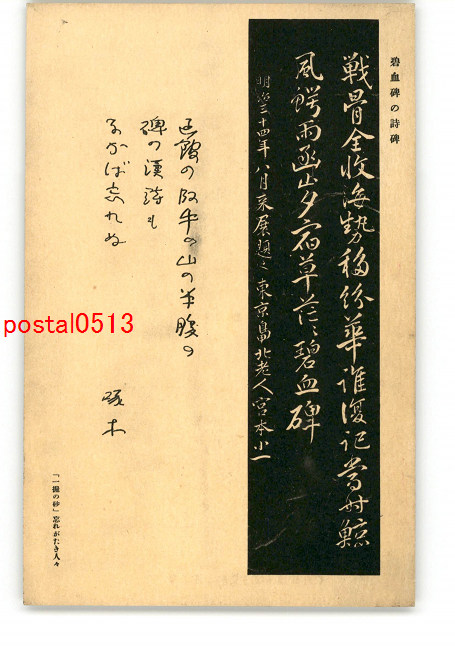 碧血碑の詩碑
戦骨全收海勢移紛華誰復記當時鯨
風鰐雨函山夕宿草茫々碧血碑
明治三十四年八月来展題之東京鳥北老人宮本小一
函館の臥牛の山の半腹の
碑の漢詩も
なかば忘れぬ
啄木
「一握の砂」忘れがたき人々
postal0513